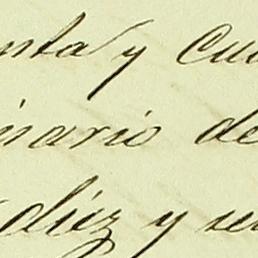 nta y cua
inario de
diez y se